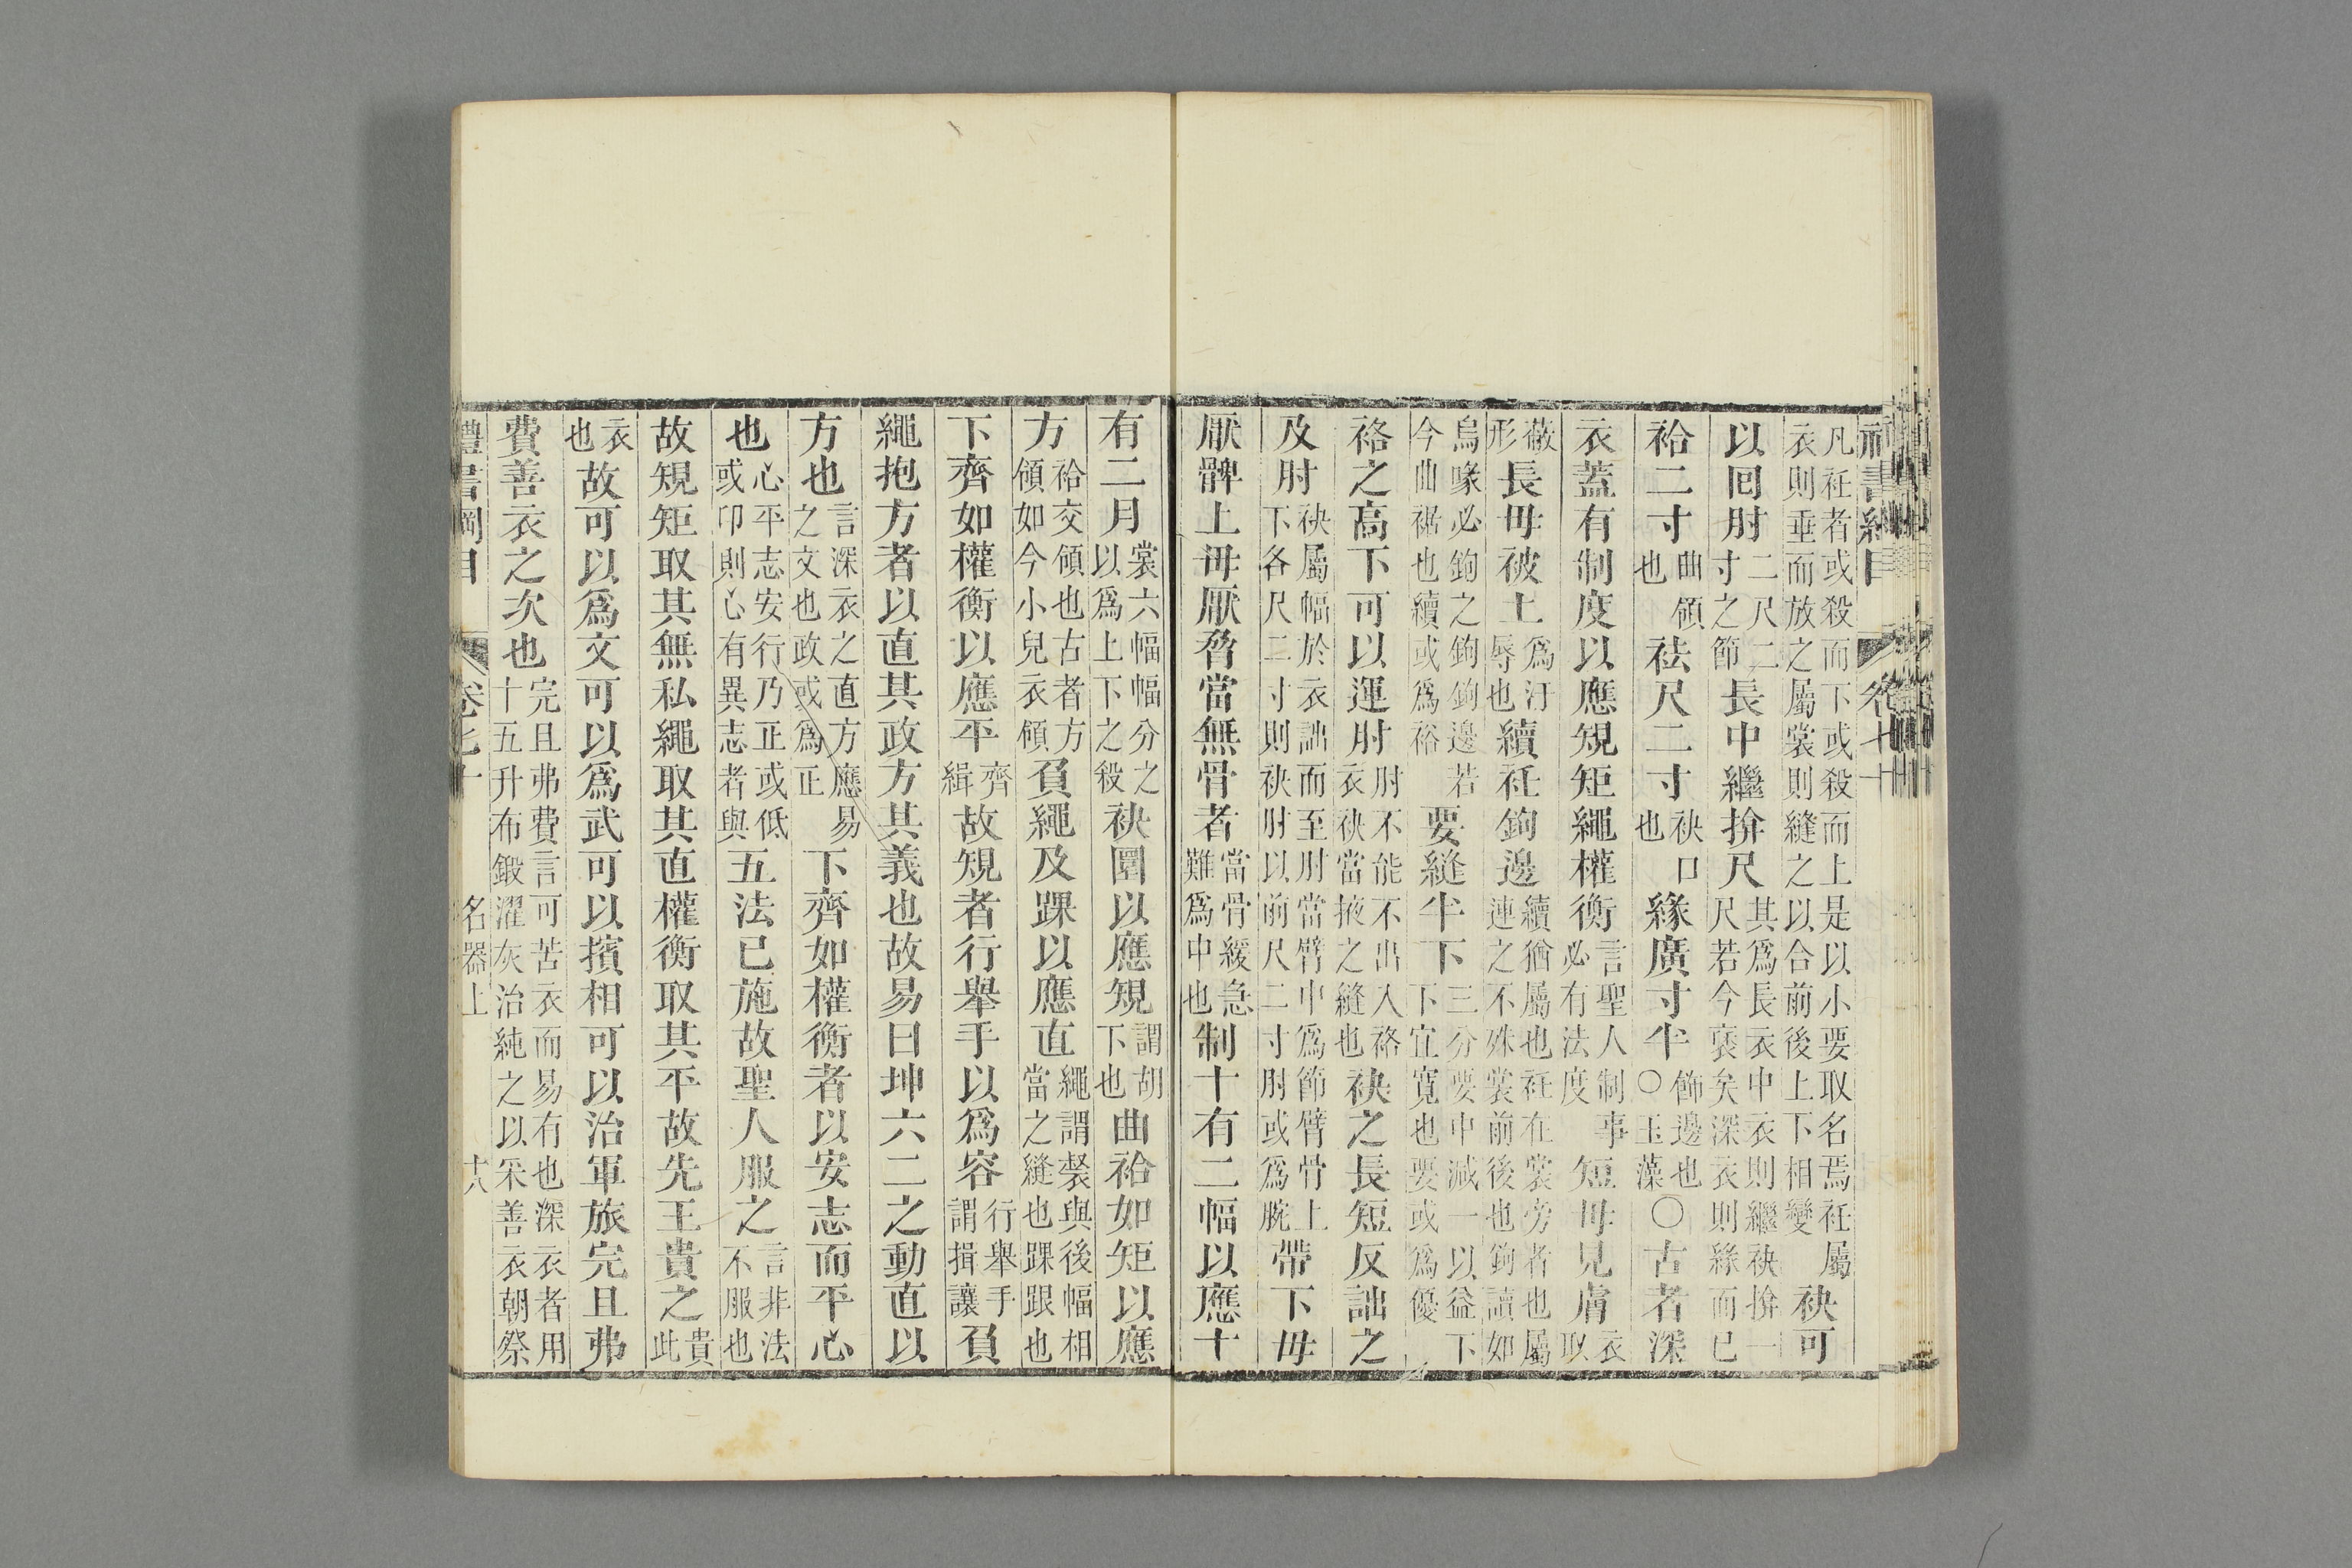 凡衽者或殺而下或殺而上是以小要取名焉衽屬衣則垂而放之屬裳則縫之以合前後上下相變袂可
以囘肘二尺二寸之節長中繼揜尺其爲長衣中衣則繼袂揜一尺若今褎矣深衣則緣而已
袷二寸曲領也袪尺二寸袂口也緣廣寸半飾邊也〇玉藻〇古者深
衣蓋有制度以應規矩繩權衡言聖人制事必有法度短毋見膚衣取
蔽形長毋被土爲汙辱也續衽鉤邊續猶屬也衽在裳旁者也屬連之不殊裳前後也鉤讀如
烏喙必鉤之鉤鉤邊若今曲裾也續或爲裕要縫半下三分要中減一以益下下宜寬也要或爲優
袼之高下可以運肘肘不能不出入袼衣袂當掖之縫也袂之長短反詘之
及肘袂屬幅於衣詘而至肘當臂中爲節臂骨上下各尺二寸則袂肘以前尺二寸肘或爲腕帶下毋
厭髀上毋厭脅當無骨者當骨緩急難爲中也制十有二幅以應十
有二月裳六幅幅分之以爲上下之殺袂圜以應規謂胡下也曲袷如矩以應
方袷交領也古者方領如今小兒衣領負繩及踝以應直繩謂裻與後幅相當之縫也踝跟也
下齊如權衡以應平齊緝故規者行舉手以爲容行舉手謂揖讓負
繩抱方者以直其政方其義也故易曰坤六二之動直以
方也言深衣之直方應易之文也政或爲正下齊如權衡者以安志而平心
也心平志安行乃正或低或卬則心有異志者與五法已施故聖人服之言非法不服也
故規矩取其無私繩取其直權衡取其平故先王貴之貴此
衣也故可以爲文可以爲武可以擯相可以治軍旅完且弗
費善衣之次也完且弗費言可苦衣而易有也深衣者用十五升布鍛濯灰治純之以采善衣朝祭
禮書綱目 卷七十 名器上 十八